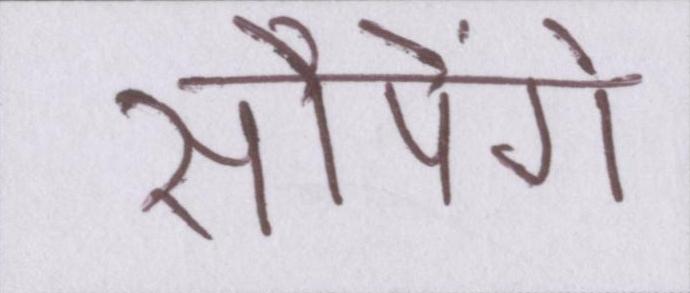 सौपेंगे